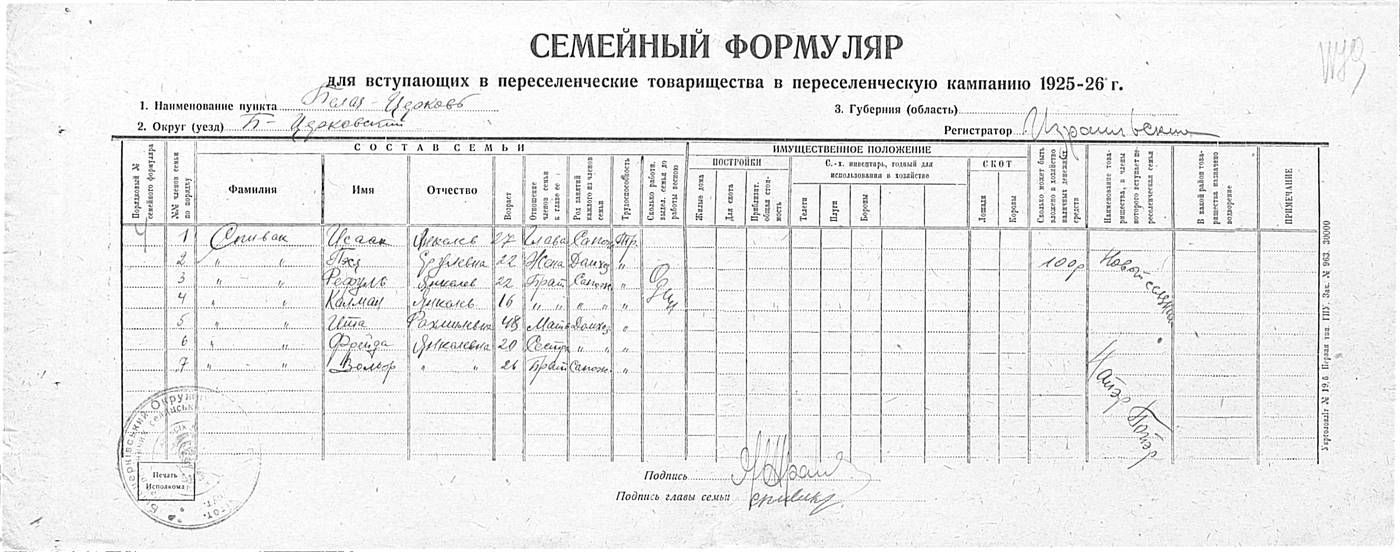 СЕМЕЙНЫЙ ФОРМУЛЯР
для вступающих в переселенческие товарищества в переселенческую кампанию 1925-26 г.
1. Наименование пункта Белая-Церковь
3. Губерния (область)
2. Округ (уезд) Б-Церковский
Регистратор
СОСТАВ СЕМЬИ
ИМУЩЕСТВЕННОЕ ПОЛОЖЕНИЕ
Порядковый № семейного формуляра
№№ членов семьи по порядку
Фамилия
Имя
Отчество
Возраст
Отношение членов семьи к главе ее
Род занятий каждого из членов семьи
Трудоспособность
Сколько работн. выдел. семья до работы весною
ПОСТРОЙКИ
Жилые дома
Для скота
Приблизит. общая стоимость
С.-х. инвентарь, годный для использования в хозяйстве
Телеги
Плуги
Бороны
СКОТ
Лошади
Коровы
Сколько может быть вложено в хозяйство наличных денежных средств
Наименование товарищества, в члены которого вступает переселенческая семья
В какой район товарищества назначено водворение
ПРИМЕЧАНИЕ
1 Спивак Исаак Янкелев 27 Глава Сапож. Тр.
2 " " 22 Жена Домхоз "
3 " " Рефуль Янкелев 22 Брат Сапож. "
4 " " Калман Янкелев 16 " " " " "
5 " " Ита Рахмилевна 48 Мать Домхоз "
6 " " Фрейда Янкелевна 20 Сестра " " "
7 " " Вольф " " 26 Брат Сапож. "
Один
100р
Новой
Печать Исполкома
Подпись
Подпись главы семьи
Укрголовліт № 19,6. Перша тип. ГПУ, Зак. № 963. 30000